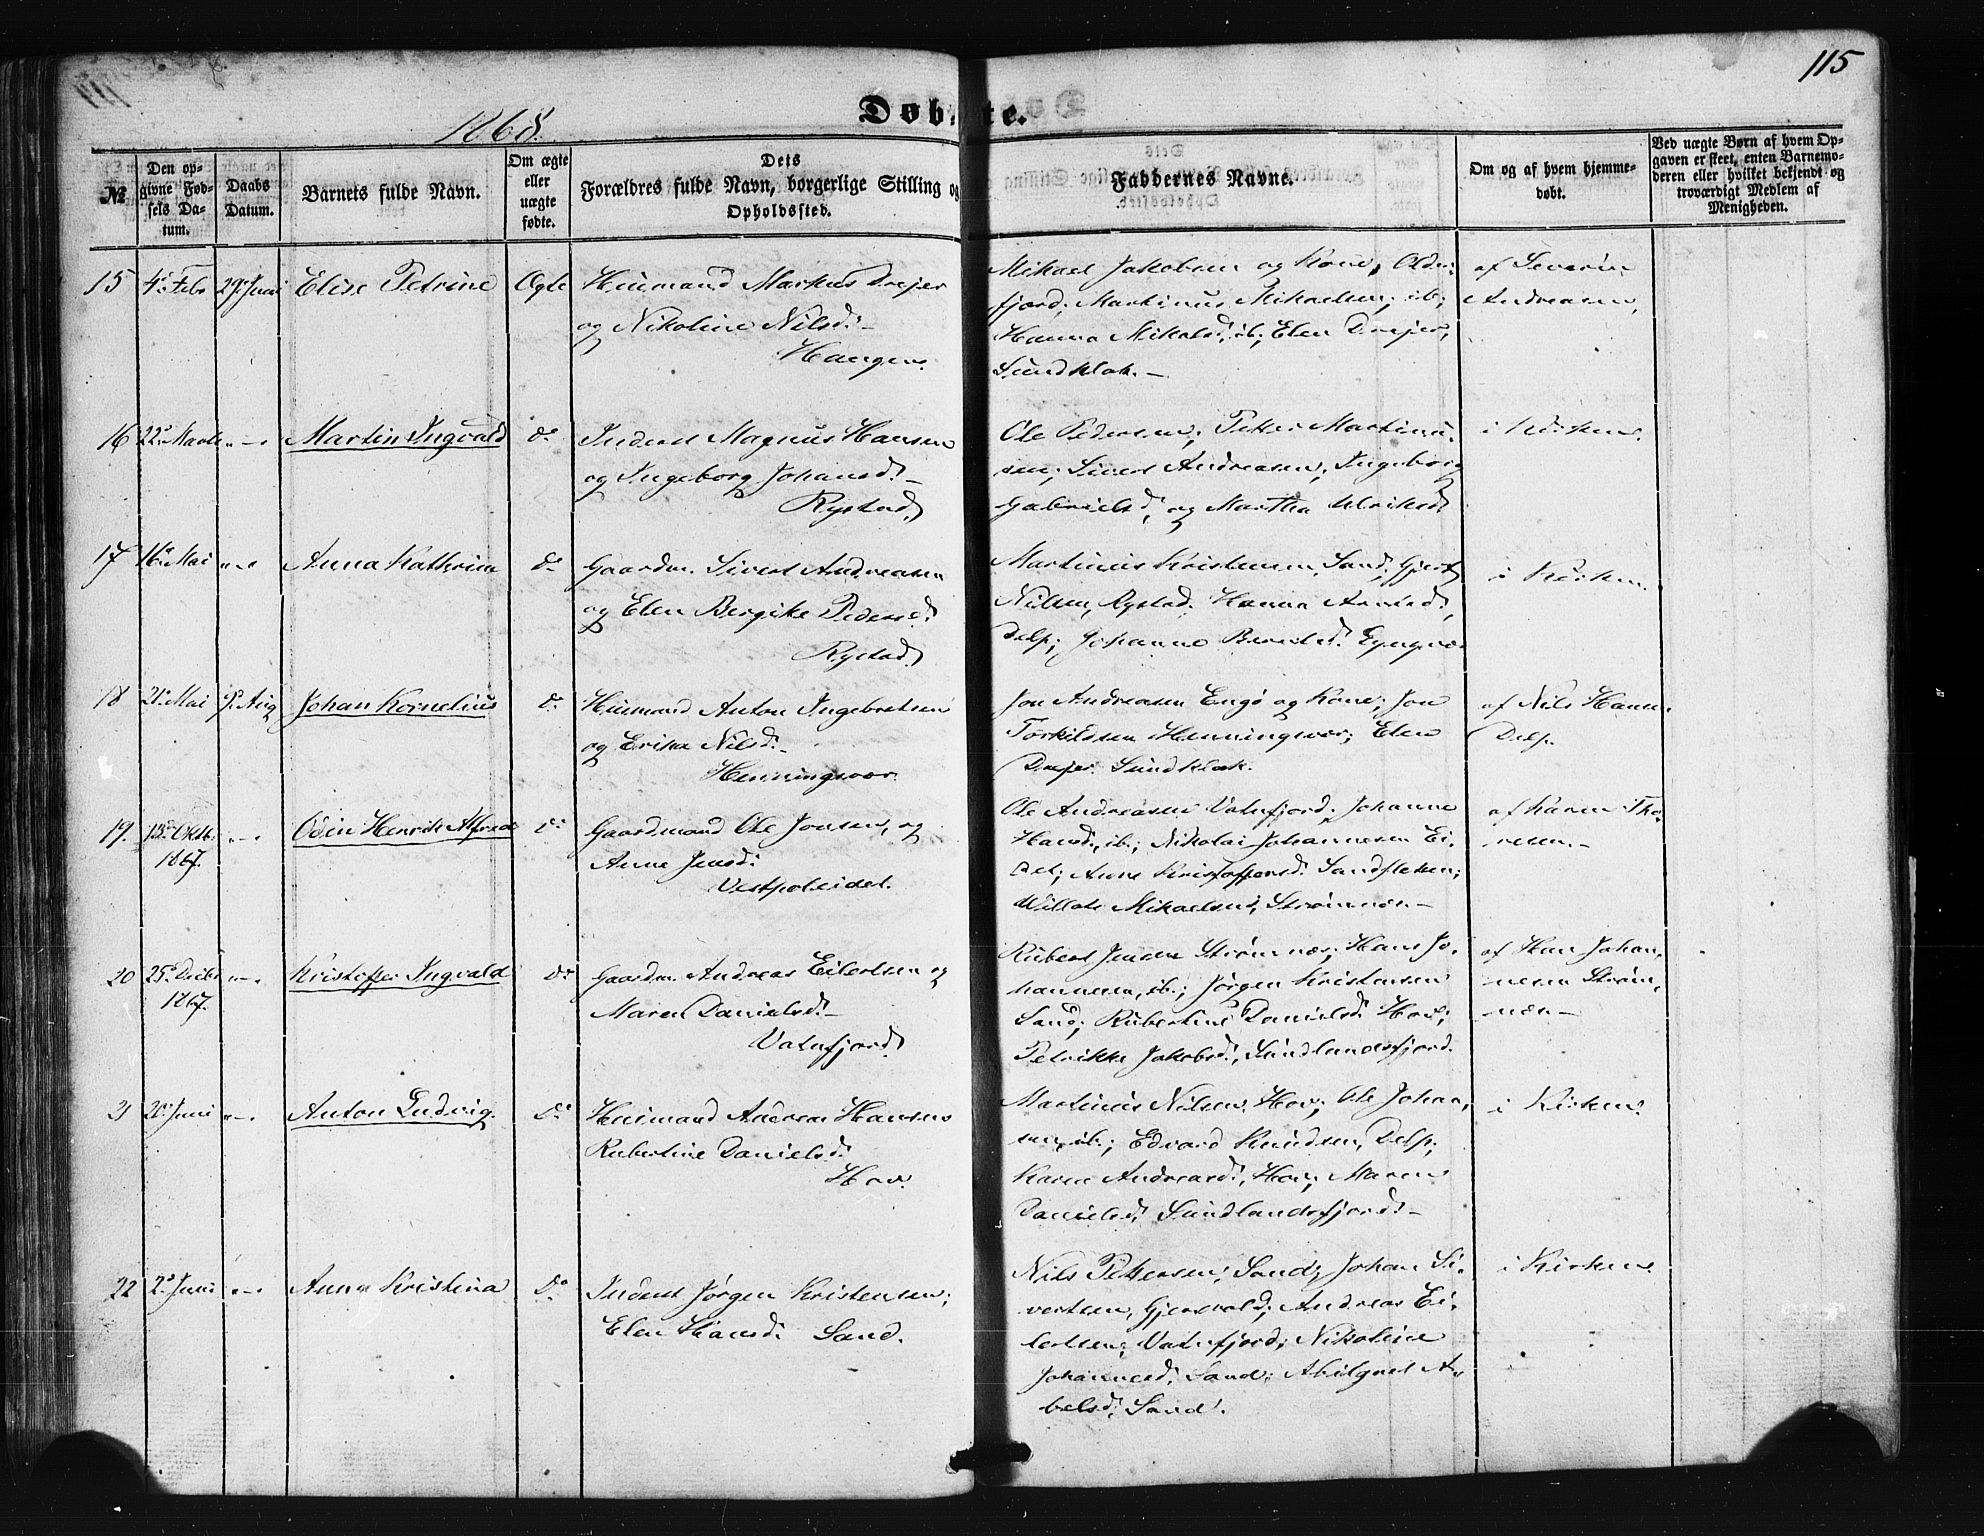 115
1868.
Døbte.
№
Den opgivne Fødsels Datum.
Daabs Datum.
Barnets fulde Navn.
Om ægte eller uægte fødte.
Dets Forældres fulde Navn, borgerlige Stilling og Opholdssted.
Faddernes Navne.
Om og af hvem hjemmedøbt.
Ved uægte Børn af hvem Opgaven er skeet, enten Barnemoderen eller hvilket bekjendt og troværdigt Medlem af Menigheden.
15 4de Febr 29de Juni Elise Petrine Ægte
Huusmand Markus Drejer
og Nikoline Nilsd.
Haugen.
Mikael Jakobsen og Kone,
fjord; Martinus Mikaelsen, ib;
Hanna Mikalsd, ib; Elen Drejer,
Sundklak.
af Severin
Andreasen,
16 22de Marts Martin Ingvald do
Inderst Magnus Hansen
og Ingeborg Johansd.
Rystad
Ole Pedersen, Petter Martinu-
sen; Sivert Andreasen; Ingeborg
Gabrielsd, og Martha Ulriksd
i Kirken.
17 16de Mai Anna Kathrine do
Gaardm. Sivert Andreasen
og Elen Bergithe Pedersd.
Rystad
Martinus Kristensen, Sand; Gjert
Nilsen, Rystad. Hanna
Delp; Johanna
i Kirken.
18 21de Mai 9de Aug Johan Kornelius do
Huusmand Anton Ingebretsen
og Erika Nilsd.
Henningsvær.
Jon Andreasen Engø og Kone; Jon
Torkildsen Henningsvær; Elen
Drejer Sundklak.
af Nils Hansen
Delp.
19. 18de Oktbr 1867. Odin Henrik Alfred do
Gaardmand Ole Jonsen, og
Anne Jensd.
Vestpoleidet.
Ole Andreasen Vatnfjord; Johanne
Hansd., ib.; Nikolai Johannesen Ei-
det; Anne Kristoffersd. Sandsletten;
Mikaelsen, Strømnæs
af Karen Tho-
resen.
20 25de Decbr 1867. Kristoffer Ingvald do
Gaardm. Andreas Eilertsen og
Maren Danielsd.
Vatnfjord
Rubert Jensen Strømnæs; Hans Jo-
hannesen, ib.; Jørgen Kristensen
Sand; Rubertine Danielsd. Hov;
Petrikke Jakobsd., Sundlandsfjord.
af Han Johan-
nesen Strøm-
næs
21 20de Juni Anton Ludvig. do
Huusmand Andreas Hansen
Rubertine Danielsd.
Hov.
Martinus Nilsen, Hov; Ole Johan-
sen, ib.; Edvard Knudsen, Delp;
Karen Andreasd., Hov; Maren
Danielsd. Sundlandsfjord.
i Kirken.
22 2de Juni Anna Kristina do
Inderst Jørgen Kristensen;
Elen Hansd. Sand.
Nils Pettersen, Sand; Johan Si-
vertsen, Gjersvold; Andreas Ei-
lertsen, Vatnfjord; Nikoline
Johannesd. Sand; Abilgael A-
belsd, Sand.
i Kirken.